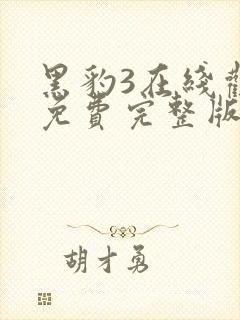 黑豹3在线
免费完整版
胡才勇